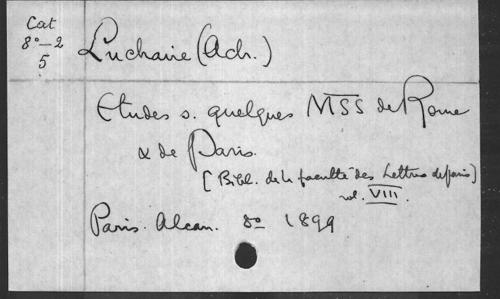 Cat
8°-2
5
Luchaire (Ach.)
Etudes s. quelques MSS de Rome
& de Paris.
[Bibl. de la faculté des Lettres de paris]
vol. VIII.
Paris. Alcan. 8° 1899